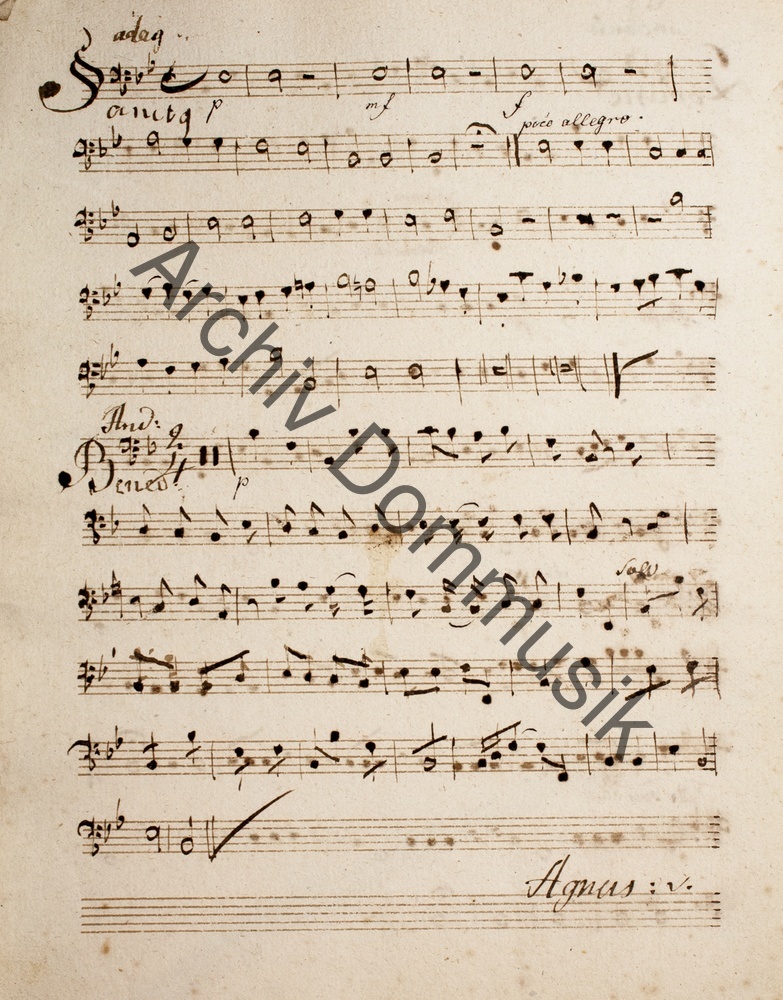 adag.
Sanctq
p mf f
poco allegro.
And:
2
4
Bened:
p
Solo
Agnus: v.
Archiv Dommusik